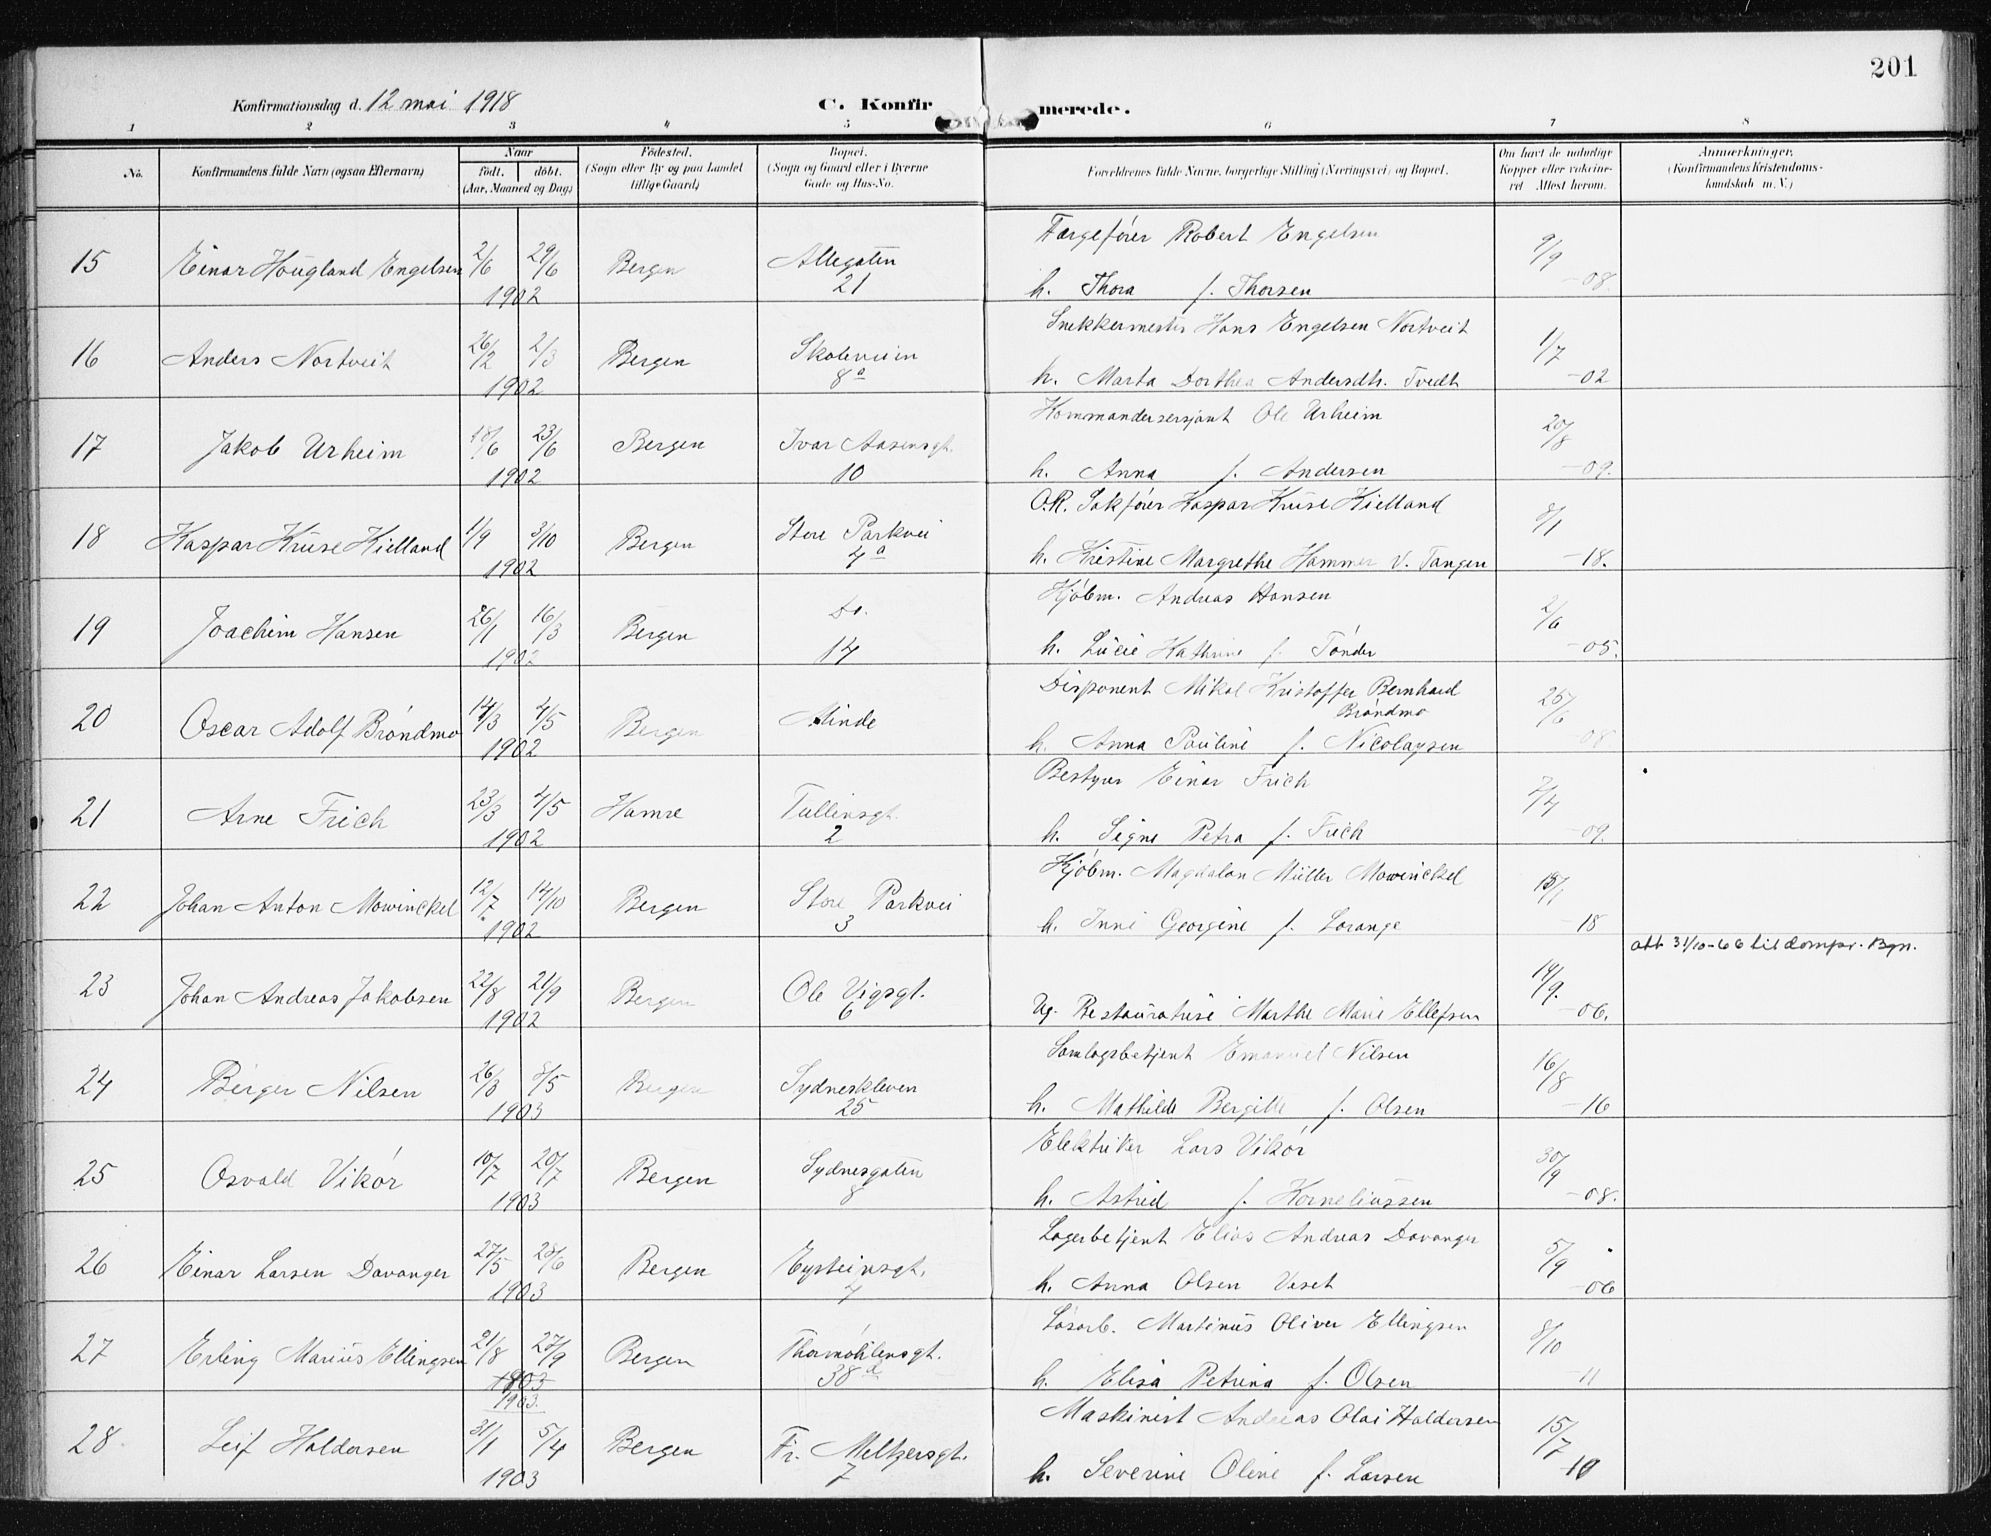 201
Konfirmationsdag d. 12 mai 1918
C. Konfirmerede.
1 2 3 4 5 6 7 8
No. Konfirmandens fulde Navn (ogsaa Efternavn) Naar født. døbt. (Aar, Maaned og Dag) Fødested. (Sogn eller By og paa Landet tillige Gaard) Bopæl. (Sogn og Gaard eller i Byerne Gade og Hus-No. Forældrenes fulde Navne, borgerlige Stilling (Næringsvei) og Bopæl. Om havt de naturlige Kopper eller vakcineret. Attest herom. Anmærkninger. (Konfirmandens Kristendomskundskab m. V.)
15 Einar Hougland Engelsen 2/6 29/6 1902 Bergen Allegaten 21 Færgefører Robert Engelsen 9/9
h. Thora f. Thorsen -08.
16 Anders Nortveit 26/2 2/3 1902 Bergen Skoleveien 8a Snekkermester Hans Engelsen Nortveit 1/7
h. Marta Dorthea Andersdtr. Tvedt -02
17 Jakob Urheim 18/6 23/6 1902 Bergen Ivar Aasensgt. 10 Kommandersersjant Ole Urheim 20/8
h. Anna f. Andersen -09.
18 Kaspar Kruse Kielland 1/9 3/10 1902 Bergen Store Parkvei 4a O.R. Sakfører Kaspar Kruse Kielland 8/1
h. Kristine Margrethe Hammer v. Tangen -18.
19 Joachim Hansen 26/1 16/3 1902 Bergen Do. 14 Kjøbm. Andreas Hansen 2/6
h. Lucie Kathrine f. Tønder -05.
20 Oscar Adolf Brøndmo 14/3 4/5 1902 Bergen Minde Disponent Mikal Kristoffer Bernhard Brøndmo 25/6
h. Anna Pauline f. Nicolaysen -08
21 Arne Frich 23/3 4/5 1902 Hamre Tullinsgt. 2 Bestyrer Einar Frich 2/4
h. Signe Petra f. Frich -09.
22 Johan Anton Mowinckel 12/7 14/10 1902 Bergen Store Parkvei 3 Kjøbm. Magdalon Müller Mowinckel 15/1
h. Inni Georgine f. Lorange -18
att 31/10-66 til dompr. Bgn.
23 Johan Andreas Jakobsen 22/8 21/9 1902 Bergen Ole Vigsgt. 6 Ug. Restauratrise Marthe Marie Ellefsen 14/9. -06.
24 Birger Nilsen 26/3 8/5 1903 Bergen Sydneskleven 25 Samlagsbetjent Emanuel Nilsen 16/8
h. Mathilde Bergitte f. Olsen -16
25 Osvald Vikør 10/7 20/7 1903 Bergen Sydnesgaten 8 Elektriker Lars Vikør 30/9
h. Astrid f. Korneliussen -08.
26 Einar Larsen Davanger 27/5 28/6 1903 Bergen Eysteinsgt. 4 Lagerbetjent Elias Andreas Davanger 5/9
h. Anna Olsen Veset -06
27 Erling Marius Ellingsen 21/8 27/9 1903 1903. Bergen Thormøhlensgt. 38d Løsarb. Martinus Oliver Ellingsen 8/10
h. Elisa Petrina f. Olsen -11
28 Leif Haldorsen 31/1 5/4 1903 Bergen Fr. Meltzersgt. 7 Maskinist Andreas Olai Haldorsen 15/7
h. Severine Oline f. Larsen -10